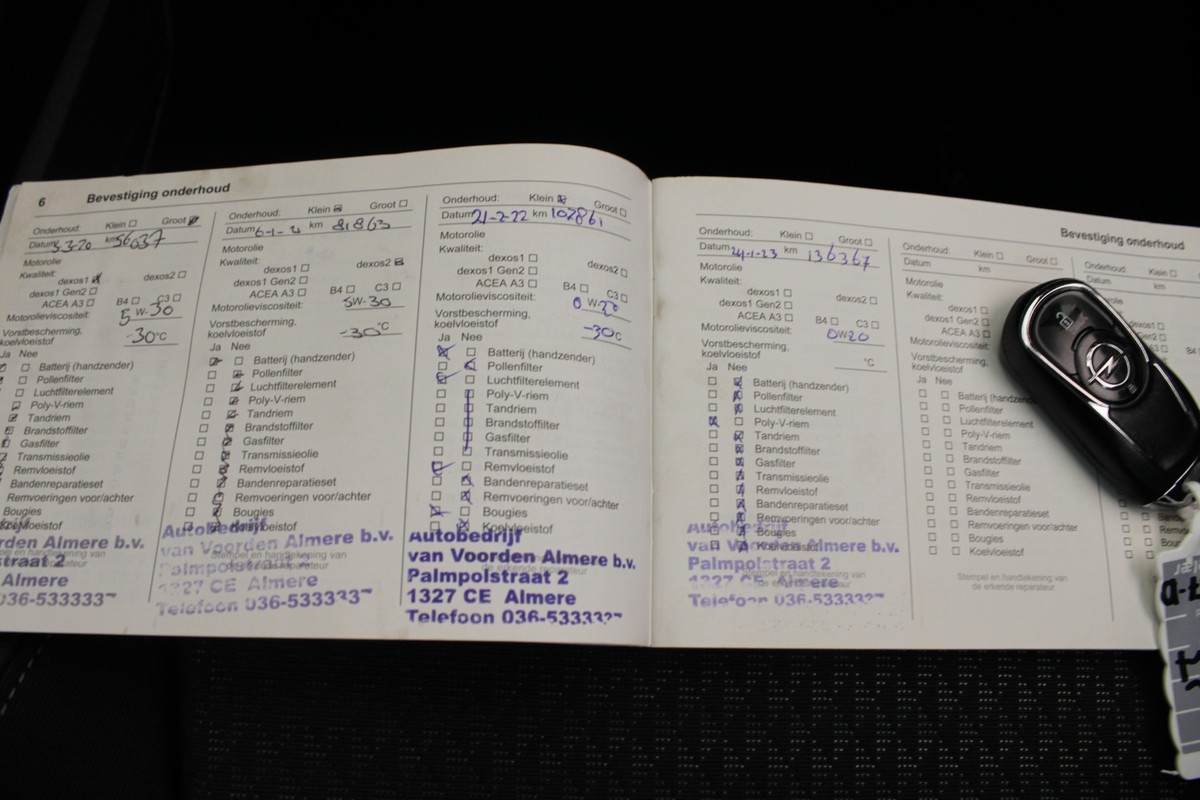 6 Bevestiging onderhoud
Onderhoud: Klein Groot
Datum 3-3-20 km 56037
Motorolie
Kwaliteit:
dexos1 dexos2
dexos1 Gen2
ACEA A3 B4 C3
Motorolieviscositeit: 5W-30
Vorstbescherming,
koelvloeistof -30°C
Ja Nee
Batterij (handzender)
Pollenfilter
Luchtfilterelement
Poly-V-riem
Tandriem
Brandstoffilter
Gasfilter
Transmissieolie
Remvloeistof
Bandenreparatieset
Remvoeringen voor/achter
Bougies
Koelvloeistof
rden Almere b.v.
traat 2
Almere
036-533333
Onderhoud: Klein Groot
Datum 6-1-2 km 81863
Motorolie
Kwaliteit:
dexos1 dexos2
dexos1 Gen2
ACEA A3 B4 C3
Motorolieviscositeit: 5W-30
Vorstbescherming,
koelvloeistof -30°C
Ja Nee
Batterij (handzender)
Pollenfilter
Luchtfilterelement
Poly-V-riem
Tandriem
Brandstoffilter
Gasfilter
Transmissieolie
Remvloeistof
Bandenreparatieset
Remvoeringen voor/achter
Bougies
Koelvloeistof
Autobedrijf
van Voorden Almere b.v.
Palmpolstraat 2
1327 CE Almere
Telefoon 036-533333
Onderhoud: Klein Groot
Datum 21-2-22 km 102861
Motorolie
Kwaliteit:
dexos1 dexos2
dexos1 Gen2
ACEA A3 B4 C3
Motorolieviscositeit: 0W-20
Vorstbescherming,
koelvloeistof -30°C
Ja Nee
Batterij (handzender)
Pollenfilter
Luchtfilterelement
Poly-V-riem
Tandriem
Brandstoffilter
Gasfilter
Transmissieolie
Remvloeistof
Bandenreparatieset
Remvoeringen voor/achter
Bougies
Koelvloeistof
Autobedrijf
van Voorden Almere b.v.
Palmpolstraat 2
1327 CE Almere
Telefoon 036-533333
Bevestiging onderhoud
Onderhoud: Klein Groot
Datum 24-1-23 km 136367
Motorolie
Kwaliteit:
dexos1 dexos2
dexos1 Gen2
ACEA A3 B4 C3
Motorolieviscositeit: 0W20
Vorstbescherming,
koelvloeistof °C
Ja Nee
Batterij (handzender)
Pollenfilter
Luchtfilterelement
Poly-V-riem
Tandriem
Brandstoffilter
Gasfilter
Transmissieolie
Remvloeistof
Bandenreparatieset
Remvoeringen voor/achter
Bougies
Koelvloeistof
Autobedrijf
van Voorden Almere b.v.
Palmpolstraat 2
1327 CE Almere
Telefoon 036-533333
Onderhoud: Klein Groot
Datum km
Motorolie
Kwaliteit:
dexos1
dexos1 Gen2
ACEA A3
Motorolieviscositeit:
Vorstbescherming,
koelvloeistof
Ja Nee
Batterij (handzender)
Pollenfilter
Luchtfilterelement
Poly-V-riem
Tandriem
Brandstoffilter
Gasfilter
Transmissieolie
Remvloeistof
Bandenreparatieset
Remvoeringen voor/achter
Bougies
Koelvloeistof
Stempel en handtekening van
de erkende reparateur
Onderhoud: Klein
Datum km